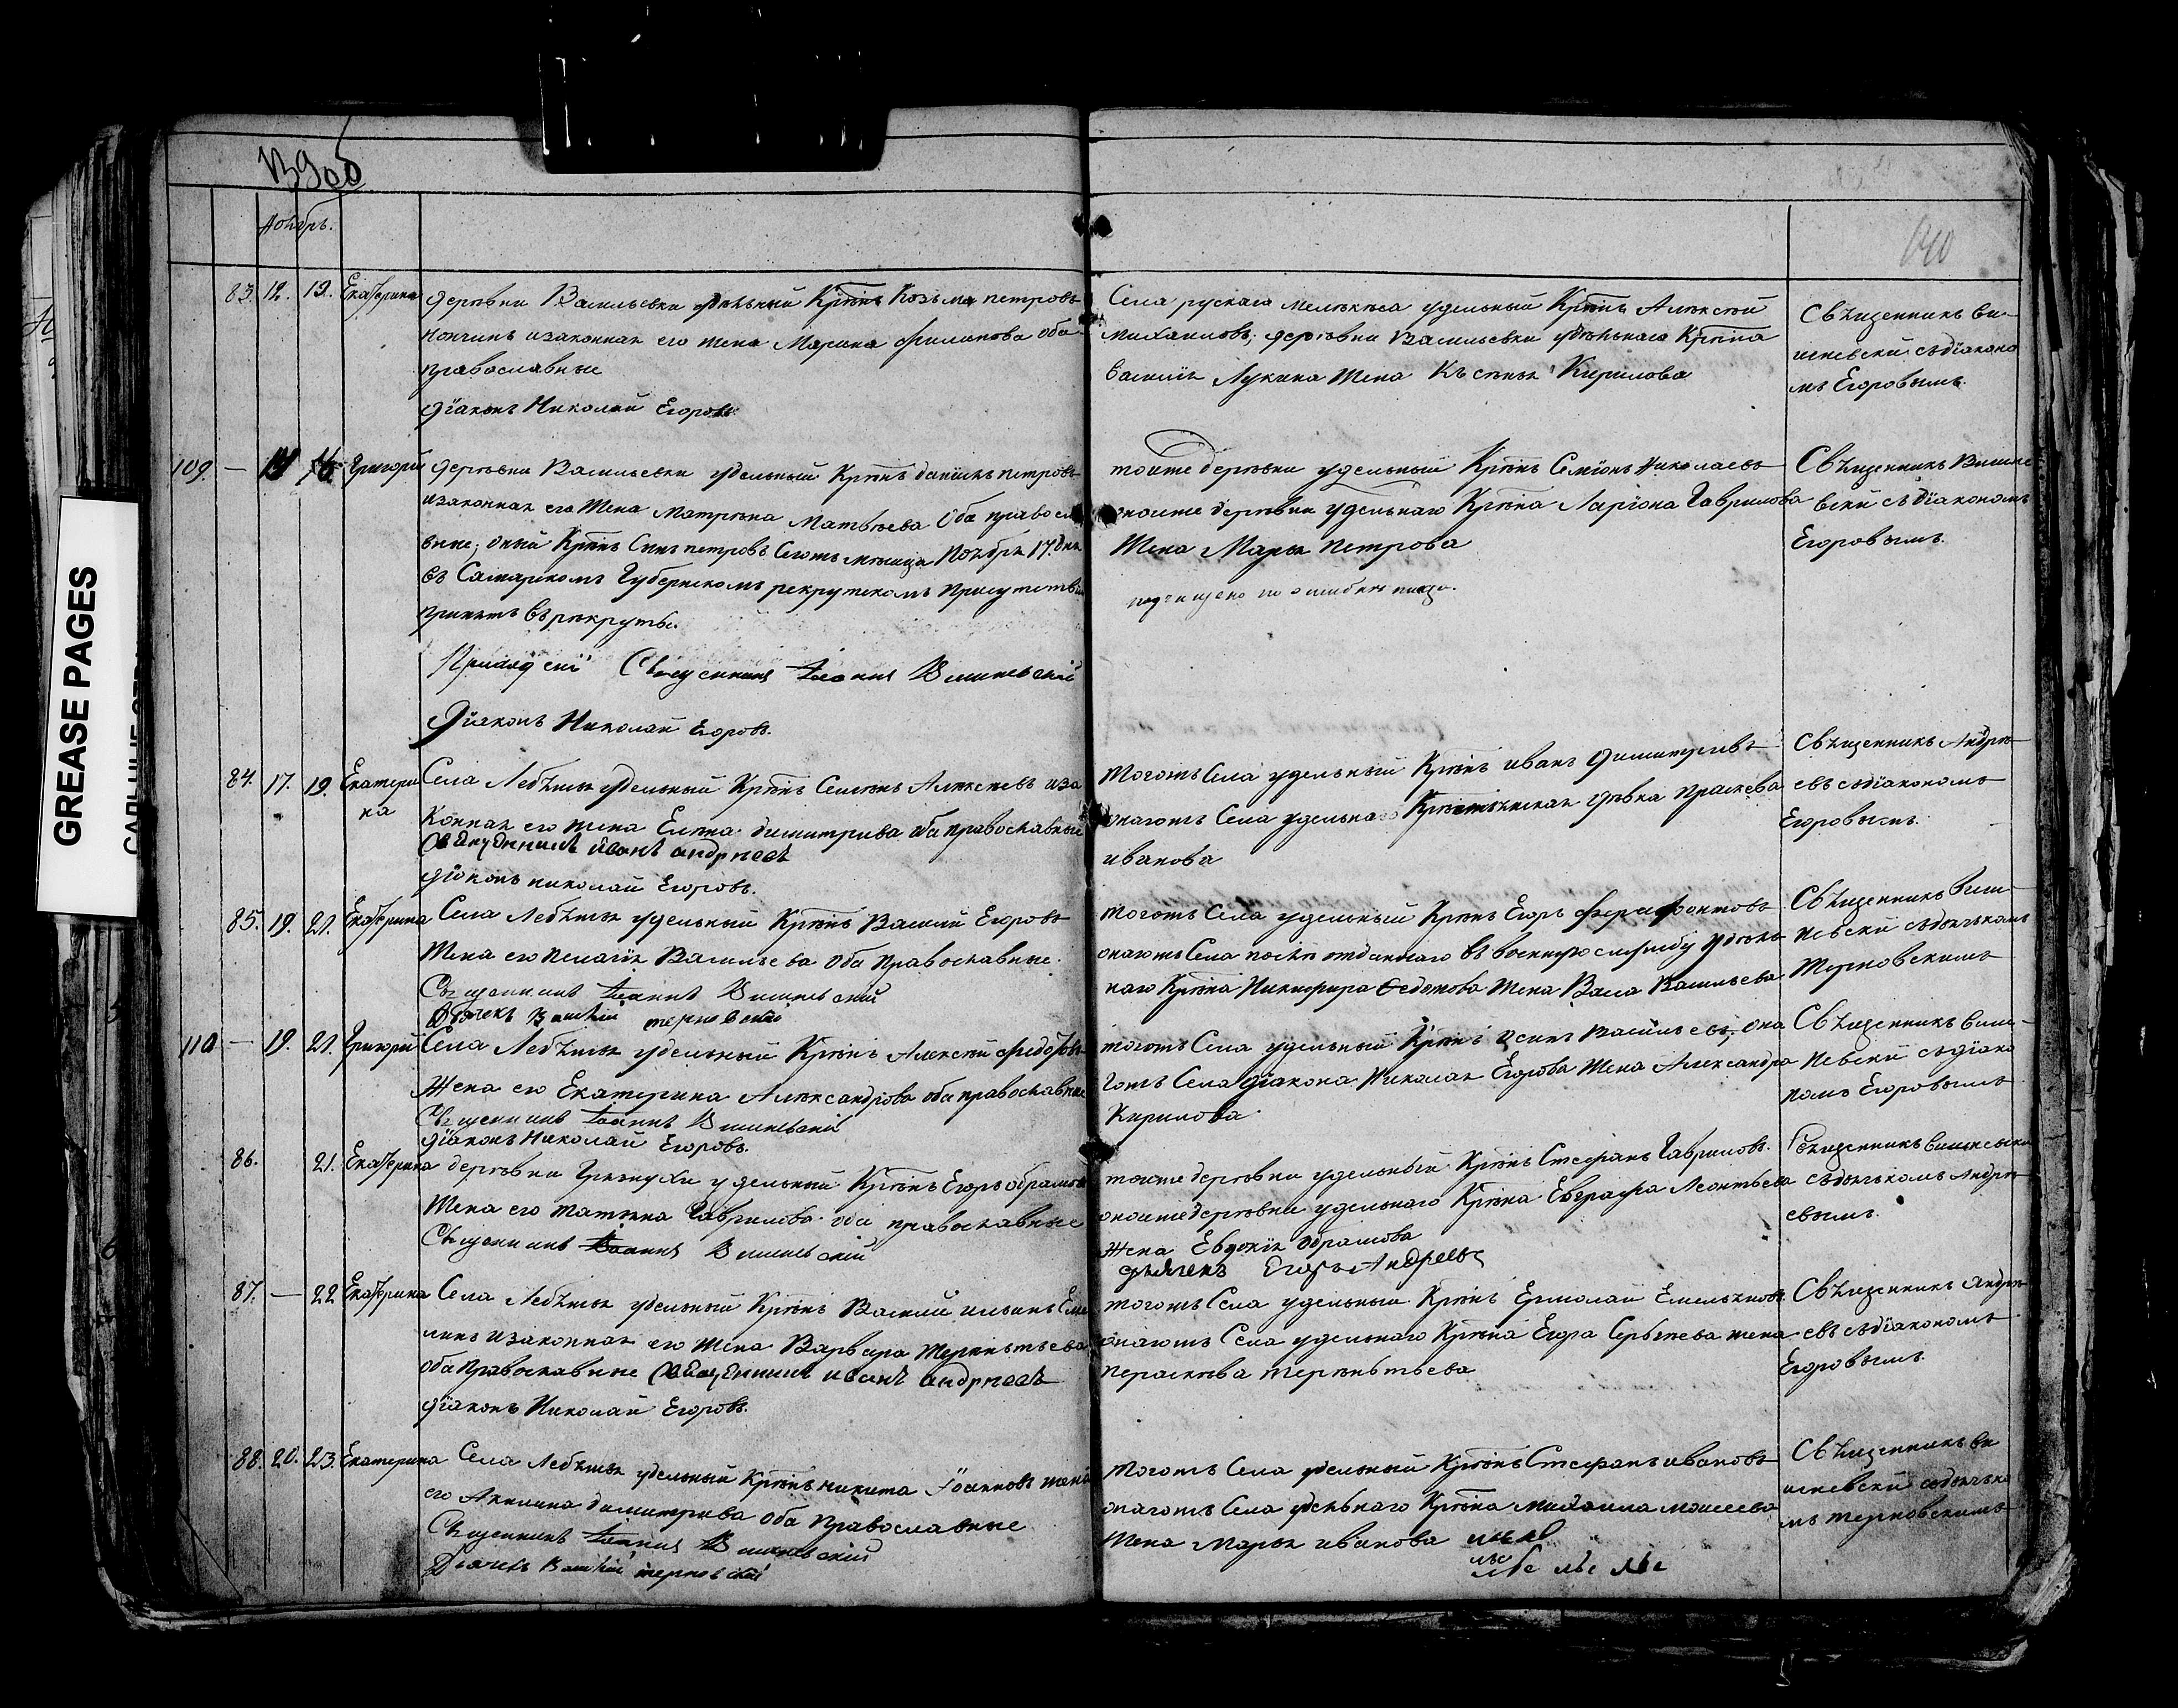 GREASE PAGES
Ноябрь.
83. 12. 13. Екатерина
деревни Васильевки удельный Крѣнъ Козьма петровъ
изаконная его жена Марина Филипова оба
православные
діаконъ Николай Егоровъ
Села рускаго мелекеса удельный Крѣнъ Алексѣй
михаиловъ; деревни Васильевки удѣльнаго Крѣна
василія Лукина жена Кирилова
Священникъ Ви-
шневски съдіаконо
мъ Егоровымъ.
109. — Григорій
деревни Васильевки удельный Крѣнъ петровъ
изаконная его жена Матрена Матвѣева Оба правосла
вные; оный Крѣнъ петровъ Сегожъ мѣсяца Ноября 17. дня
въ Самарскомъ Губернскомъ рекрутскомъ присутствіи
принятъ въ рекруты.
Священникъ Іоаннъ Вишневскій
Діаконъ Николай Егоровъ.
тойже деревни удельный Крѣнъ Семіонъ Николаевъ
оноиже деревни удельнаго Крѣна Ларіона Гаврилова
жена Марья петрова
подчищено по ошибкѣ
Священникъ Вишне
вски съдіакономъ
Егоровымъ.
84. 17. 19. Екатери
на
Села Лебяжья удельный Крѣнъ Семенъ Алексѣевъ иза
конная его жена Елена димитрива оба православные
Священникъ иванъ андреевъ
діаконъ николай Егоровъ.
тогожъ Села удельный Крѣнъ иванъ димитривъ
онагожъ Села удельнаго Крестьянская дѣвка праскева
иванова
Священникъ Андре
евъ съдіакономъ
Егоровымъ.
85. 19. 21. Екатерина
Села Лебяжья удельный Крѣнъ Василій Егоровъ
жена его пелагія Васильева оба православные.
Священникъ Іоаннъ Вишневскій
Дьячекъ Василій терновскій
тогожъ Села удельный Крѣнъ Егоръ ферафонтовъ
онагожъ Села послѣ отданнаго въ военную службу удель
наго Крѣна Никифора Федотова жена Васа Васильева
Священникъ Виш-
невски съдьячкомъ
терновскимъ
110 — 19. 21. Григорій
Села Лебяжья удельный Крѣнъ Алексѣй
жена его Екатерина Александрова оба православные
Священникъ Іоаннъ Вишневскій
діаконъ Николай Егоровъ.
тогожъ Села удельный Крѣнъ Осипъ Васильевъ, она
гожъ Села діакона Николая Егорова жена Александра
Кирилова
Священникъ Виш-
невски съдіако
номъ Егоровымъ
86. 21. Екатерина
деревни Грязнухи удельный Крѣнъ Егоръ обрамовъ
жена его татьяна Гаврилова оба православные
Священникъ Іоаннъ Вишневскій
тоиже деревни удельный Крѣнъ Стефанъ Гавриловъ.
оноиже деревни удельнаго Крѣна Евграфа Леонтьева
жена Евдокія обрамова
дьячекъ Егоръ Андреевъ
Священникъ Вишневски
съдьячкомъ Андре
евымъ.
87. — 22 Екатерина
Села Лебяжья удельный Крѣнъ Василий ильинъ Еме
линъ изаконная его жена Варвара терентьева
оба православные Священникъ иванъ андреевъ
діаконъ Николай Егоровъ.
тогожъ Села удельный Крѣнъ Ермолай Емельяновъ
онагожъ Села удельнаго Крѣна Егора Сергѣева жена
пераскева терентьева
Священникъ Андре
евъ съдіакономъ
Егоровымъ.
88. 20. 23. Екатерина
Села Лебяжья удельный Крѣнъ никита Іоанновъ жена
его Акилина димитрива Оба православные
Священникъ Іоаннъ Вишневскій
Дьячекъ Василій терновскій
тогожъ Села удельный Крѣнъ Стефанъ ивановъ
онагожъ Села удельнаго Крѣна михаила моисеева
жена марья иванова
Священникъ Ви
шневски съдьячко
мъ терновскимъ